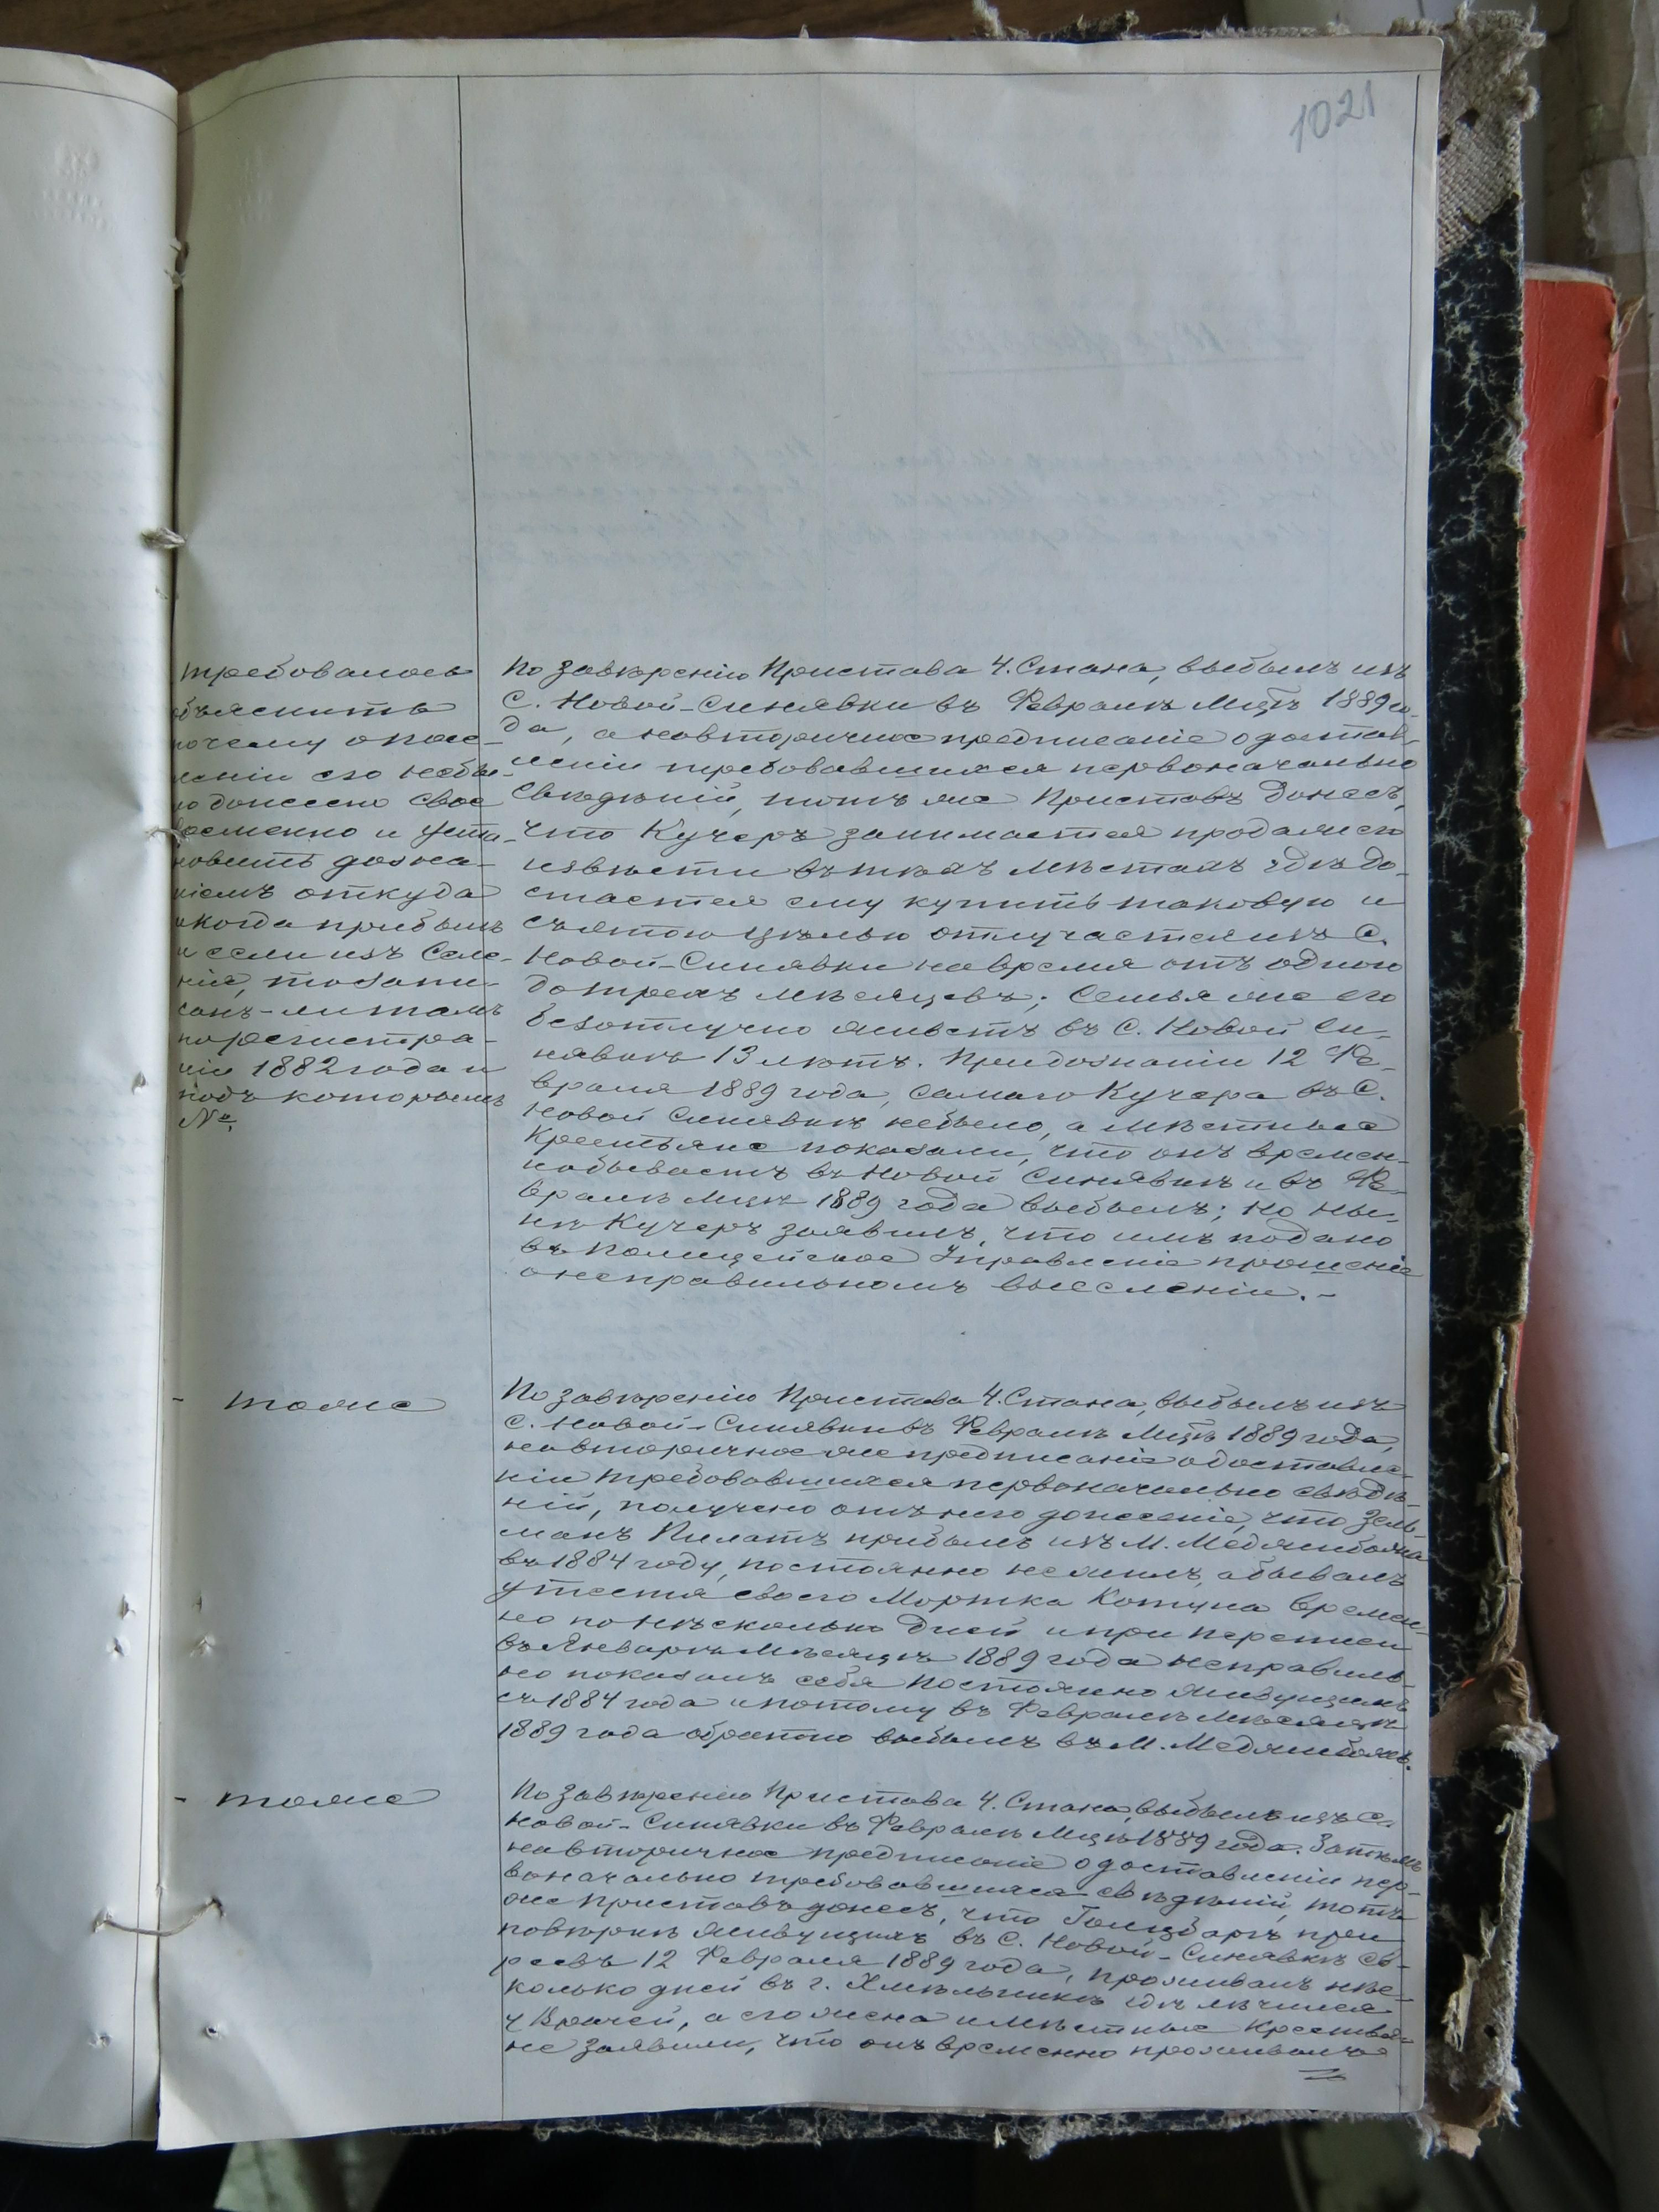 1021
требовалось
объяснить
почему о посе-
леніи его небы-
ло донесено свое
временно и уста-
новить дозна-
ніемъ откуда
и когда прибылъ
и если изъ селе-
нія, то запи-
санъ-ли тамъ
по регистра-
ціи 1882 года и
подъ которымъ
№.
По завѣренію Пристава 4. Стана, выбылъ изъ
С. Новой-Синявки въ Февралѣ Мцѣ 1889 го-
да, а на вторичное предписаніе о достав-
леніи требовавшихся первоначально
свѣдѣній, тотъ же Приставъ донесъ,
что Кучеръ занимается продажею
извѣсти въ тѣхъ мѣстахъ гдѣ до-
стается ему купить таковую и
съ этою цѣлью отлучается изъ С.
Новой-Синявки на время отъ одного
до трехъ мѣсяцевъ; Семья же его
безотлучно живетъ въ С. Новой Си-
нявкѣ 13 лѣтъ. При дознаніи 12 Фе-
враля 1889 года, самаго Кучера въ С.
Новой Синявкѣ небыло, а мѣстные
Крестьяне показали, что онъ времен-
но бываетъ въ Новой Синявкѣ и въ Фе-
вралѣ Мцѣ 1889 года выбылъ; но ны-
нѣ Кучеръ заявилъ, что имъ подано
въ Полицейское Управленіе прошеніе
о неправильномъ выселеніи.-
- тоже
По завѣренію Пристава 4. Стана, выбылъ изъ
С. Новой-Синявки въ Февралѣ Мцѣ 1889 года,
на вторичное же предписаніе о доставле-
ніи требовавшихся первоначально свѣдѣ-
ній, получено отъ него донесеніе, что Зель-
манъ Пилатъ прибылъ изъ М. Меджибожа
въ 1884 году, постоянно не жилъ, а бывалъ
у тестя своего Мортка Котуна времен-
но по нѣсколько дней и при переписи
въ Январѣ Мѣсяцѣ 1889 года неправиль-
но показалъ себя постоянно живущимъ
съ 1884 года и потому въ Февралѣ Мѣсяцѣ
1889 года обратно выбылъ въ М. Меджибожъ.
- тоже
По завѣренію Пристава 4. Стана, выбылъ изъ С.
Новой-Синявки въ Февралѣ Мцѣ 1889 года. Затѣмъ
на вторичное предписаніе о доставленіи пер-
воначально требовавшихся свѣдѣній, тотъ
же Приставъ донесъ, что при
повѣркѣ живущихъ въ С. Новой-Синявкѣ ев-
реевъ 12 Февраля 1889 года, проживалъ нѣ-
колько дней въ г. Хмѣльникѣ гдѣ лѣчился
у Врачей, а его жена и мѣстные крестья-
не заявили, что онъ временно проживалъ